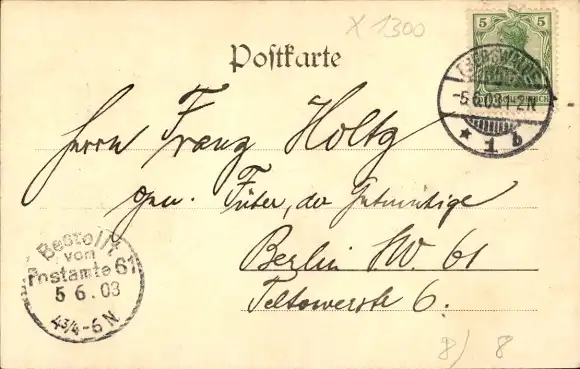 X 1300
5 5
Postkarte
EBERSWALDE
-5.6.03.1-2N
* 1 b
Herrn Franz Holtz
gen. Füber, der Gutmütige
Berlin SW. 61
Teltowerstr 6.
Bestellt
vom
Postamte 61
5 6.03
4 3/4-6 N
8